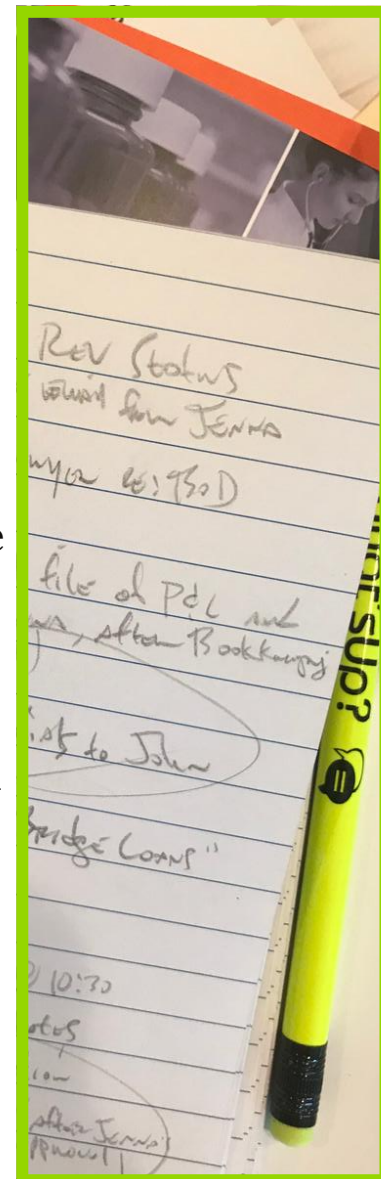 Rev Status
email from Jenna
re: BoD
file of P&L and
, after Bookkeeping
to John
Bridge Loans"
10:30
after Jenna's
Approval
sup?
e